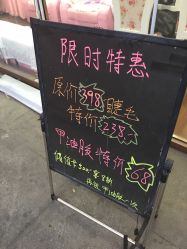 限时特惠
原价398睫毛
特价238
甲油胶特价68